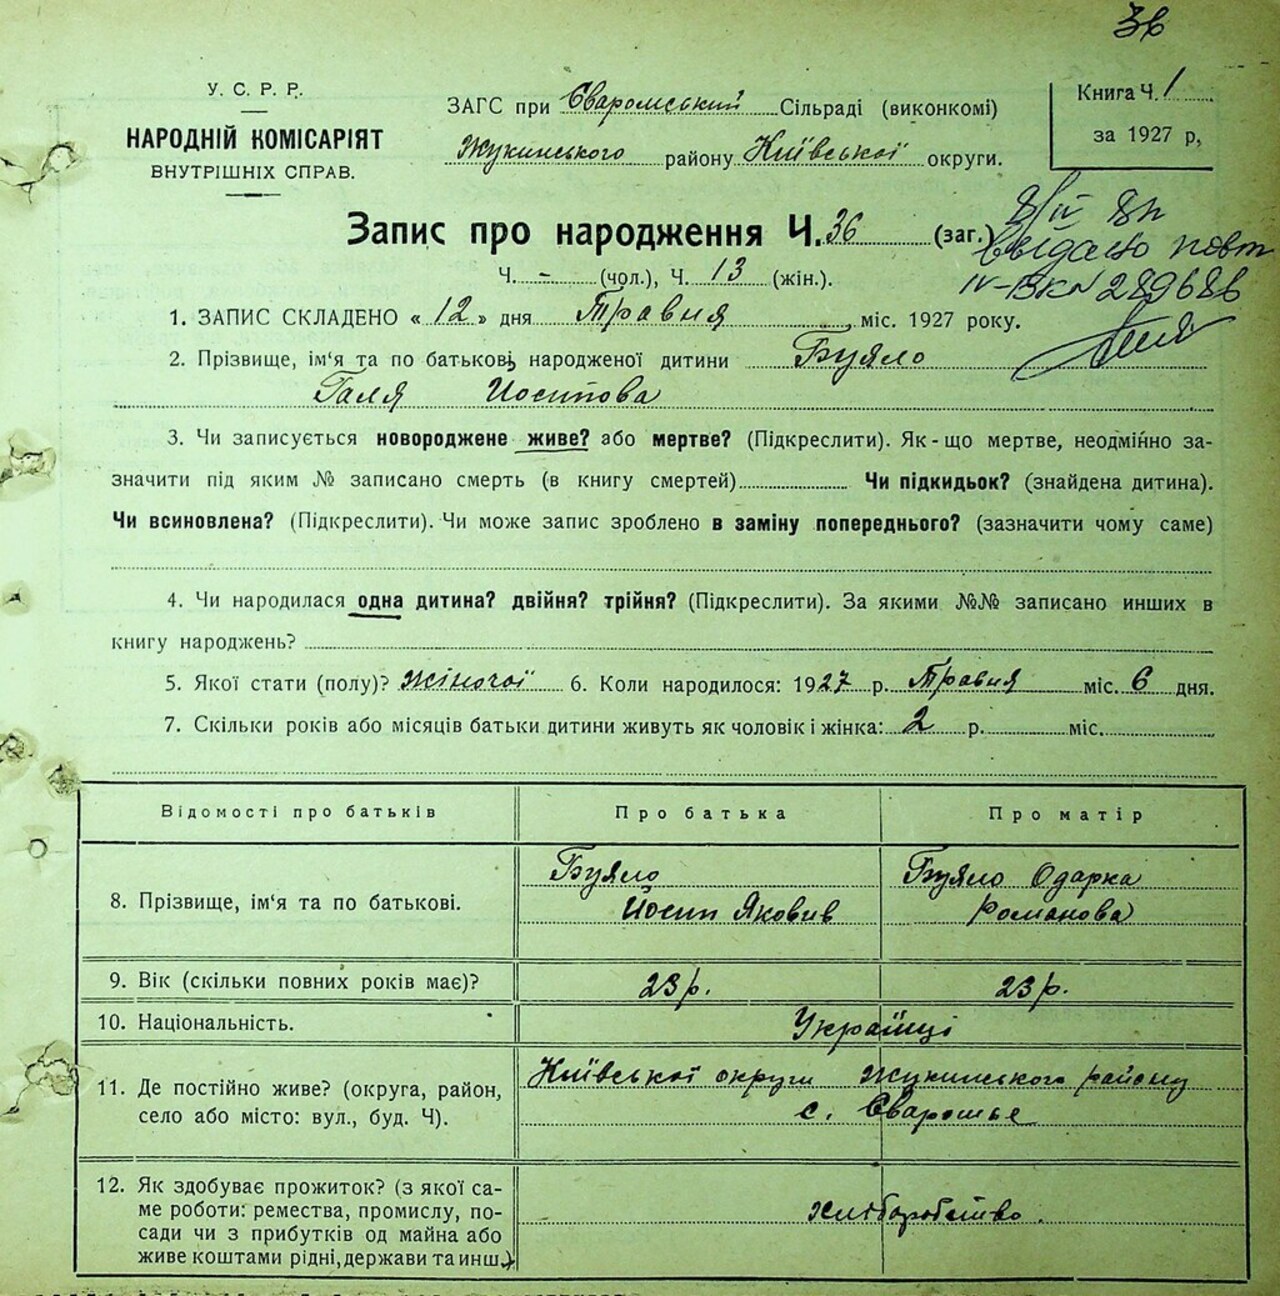 36
У. С. Р. Р.
НАРОДНІЙ КОМІСАРІЯТ
ВНУТРІШНІХ СПРАВ.
ЗАГС при Сваромський Сільраді (виконкомі)
Жукинського району Київської округи.
Книга Ч. 1
за 1927 р,
Запис про народження Ч. 36 (заг.)
Ч. - (чол.), Ч. 13 (жін.).
8/IV 8
видано повт
IV-ВК № 289686
1. ЗАПИС СКЛАДЕНО « 12 » дня Травня міс. 1927 року.
2. Прізвище, ім‘я та по батькові народженої дитини Буяло
Галя Иосипова
3. Чи записується новороджене живе? або мертве? (Підкреслити). Як-що мертве, неодмінно за-
значити під яким № записано смерть (в книгу смертей) Чи підкидьок? (знайдена дитина).
Чи всиновлена? (Підкреслити). Чи може запис зроблено в заміну попереднього? (зазначити чому саме)
4. Чи народилася одна дитина? двійня? трійня? (Підкреслити). За якими №№ записано инших в
книгу народжень?
5. Якої стати (полу)? Жіночої 6. Коли народилося: 1927 р. Травня міс. 6 дня.
7. Скільки років або місяців батьки дитини живуть як чоловік і жінка: 2 р. міс.
Відомості про батьків Про батька Про матір
8. Прізвище, ім‘я та по батькові.
Буяло
Йосип Яковив
Буяло Одарка
Романова
9. Вік (скільки повних років має)? 23 р. 23 р.
10. Національність. Українці
11. Де постійно живе? (округа, район,
село або місто: вул., буд. Ч).
Київської округи Жукинського району
с. Сваромье
12. Як здобуває прожиток? (з якої са-
ме роботи: ремества, промислу, по-
сади чи з прибутків од майна або
живе коштами рідні, держави та инш.)
хліборобство.